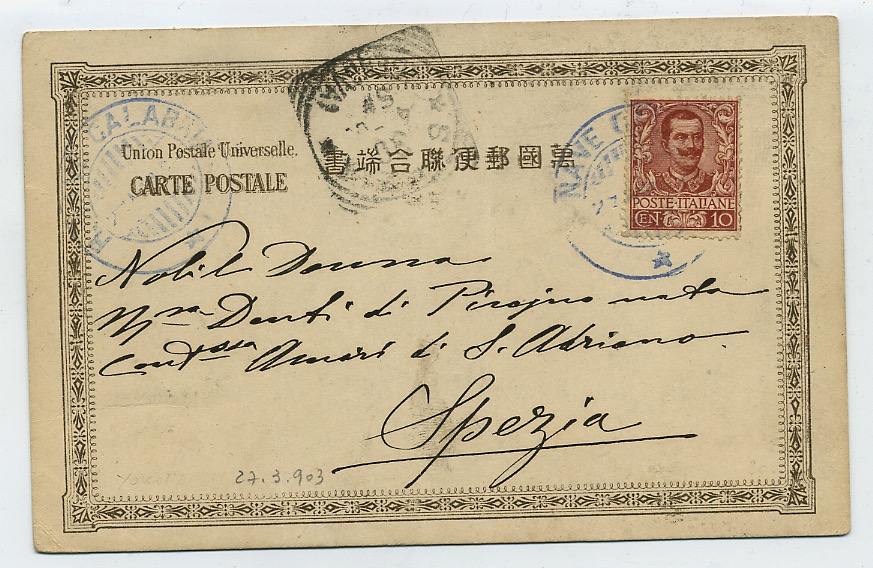 CALABRIA
Union Postale Universelle.
CARTE POSTALE
書端合聯便郵國萬
NAVE
POSTE·ITALIANE
CENT. 10
Nobil Donna
Mra Denti di Pirajno nata
Contssa Amari di S. Adriano
Spezia
27.3.903